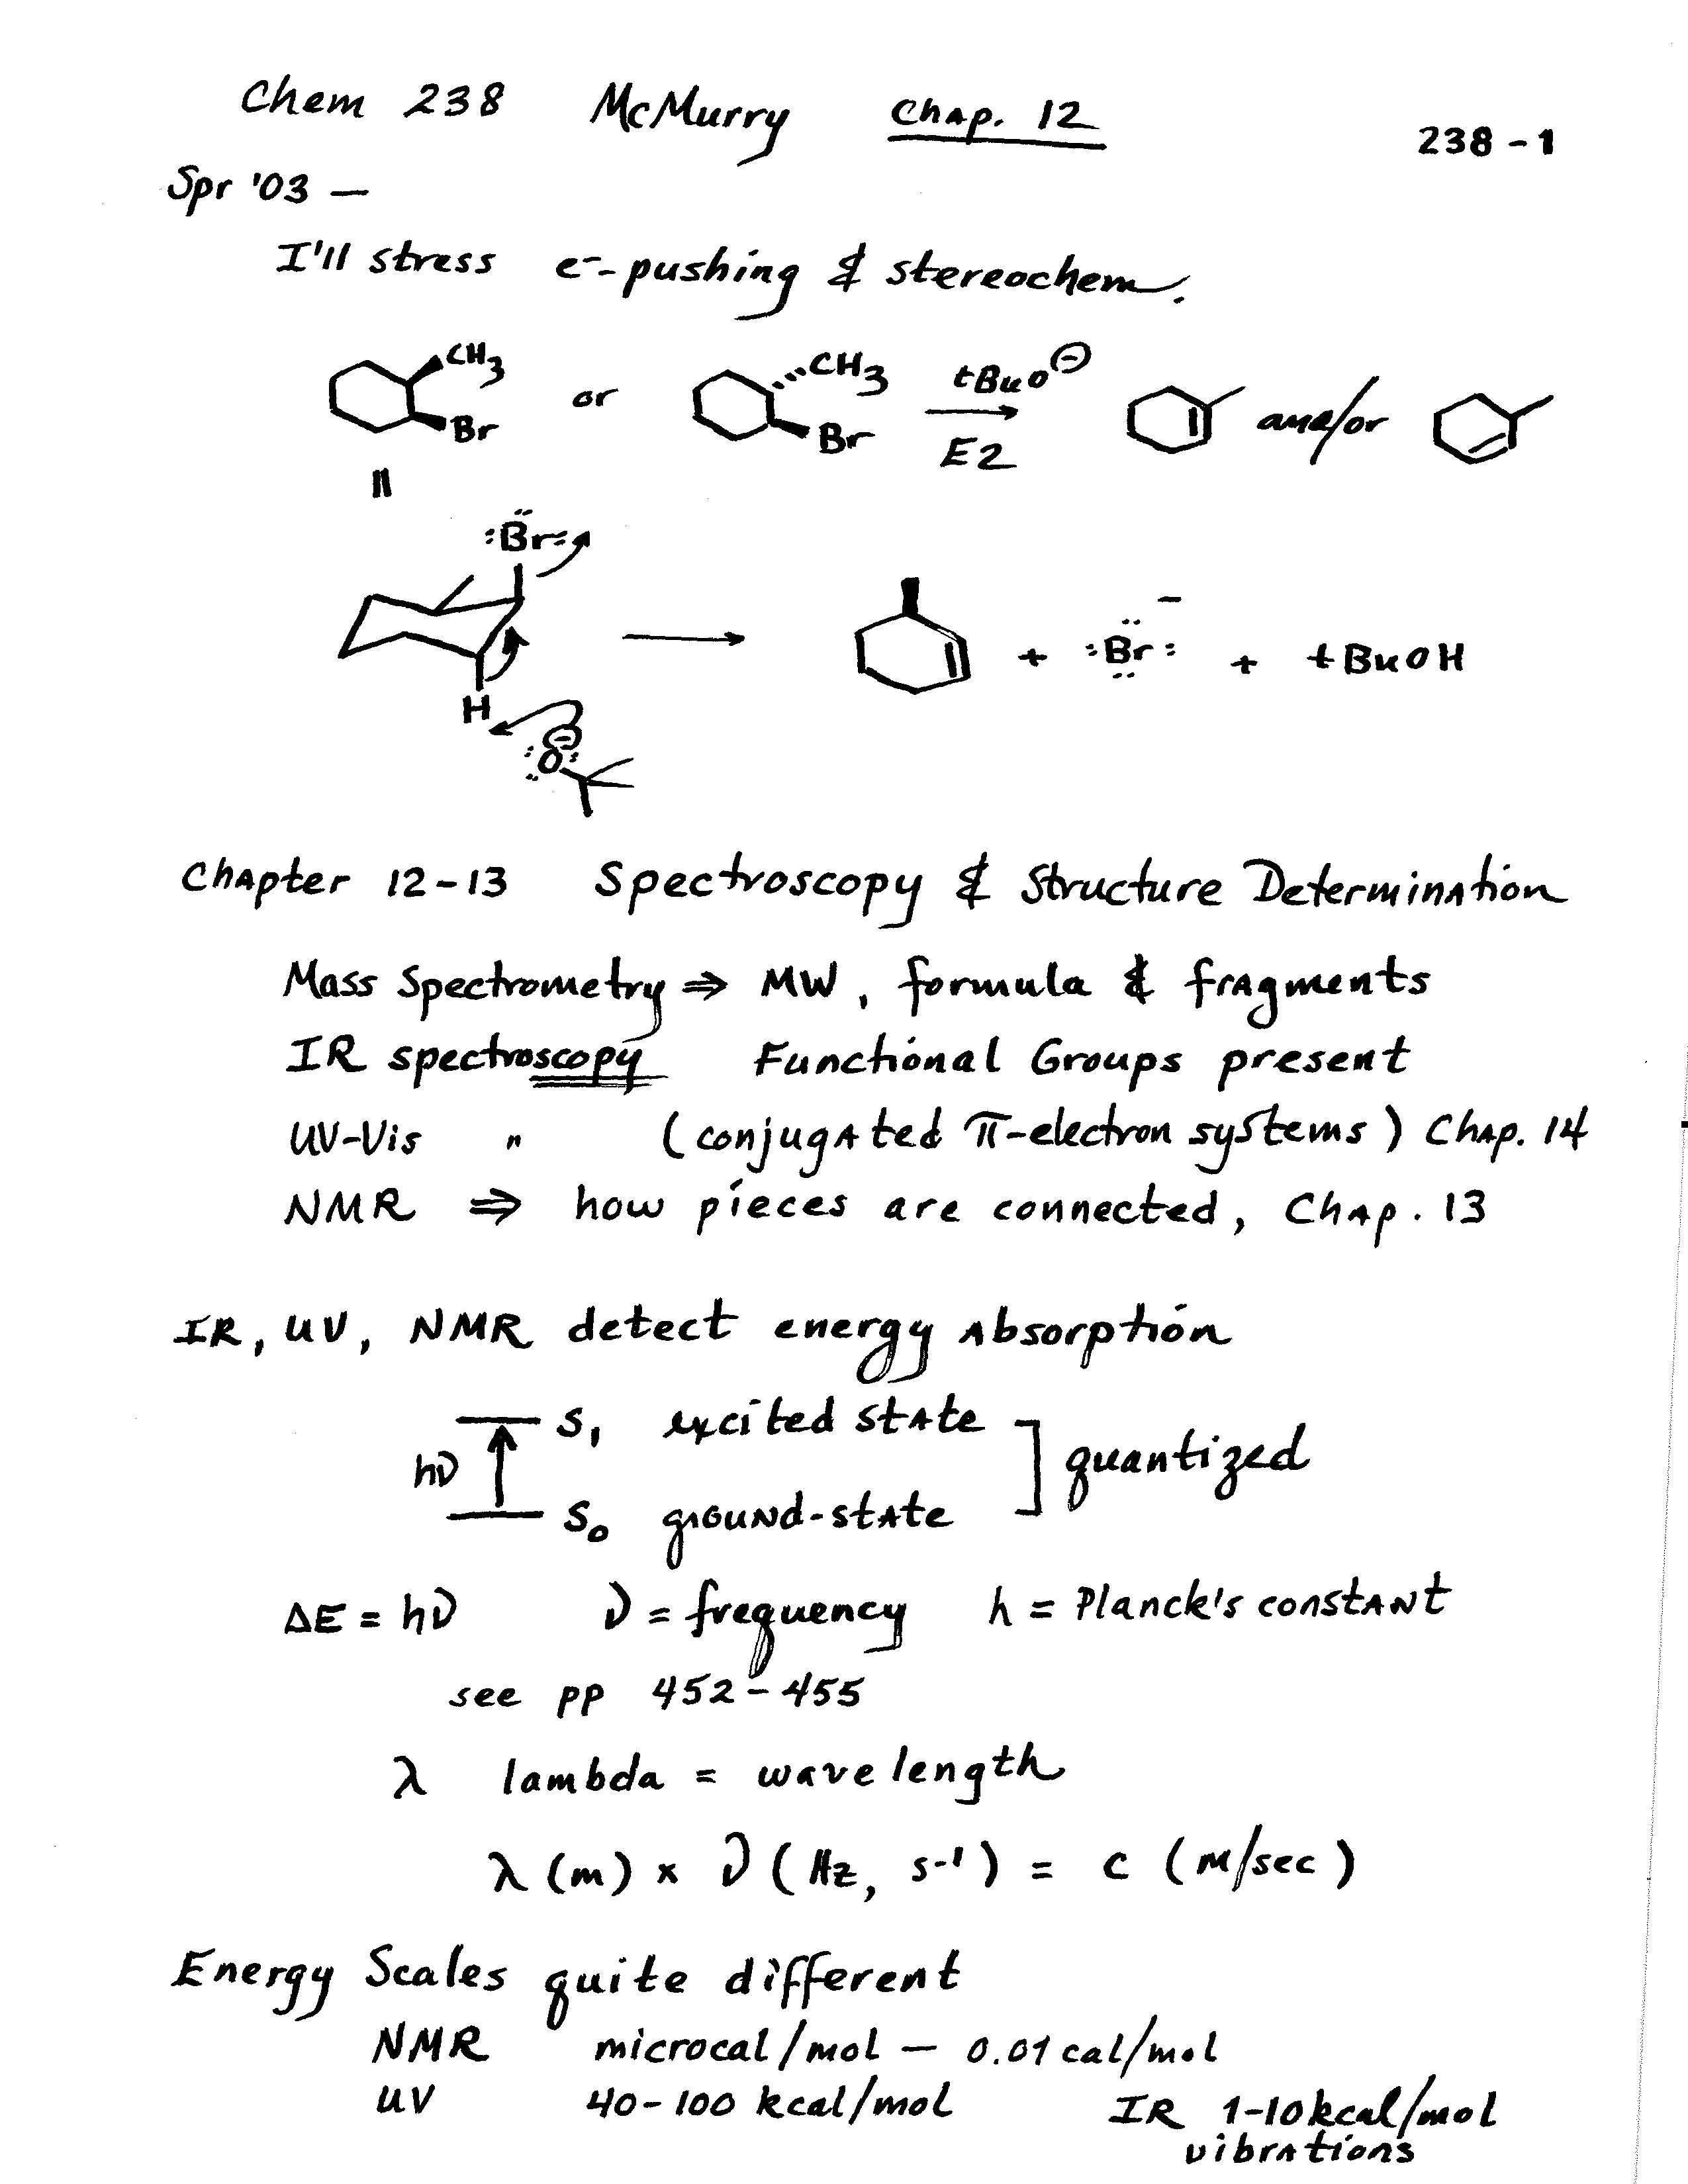 Chem 238 McMurry Chap. 12 238-1
Spr '03 —
I'll stress e⁻-pushing & stereochem.
CH3 or CH3 tBuO⊖ and/or
Br Br E2
:Br:
+ :Br:⁻ + tBuOH
H
:O:⊖
Chapter 12-13 Spectroscopy & Structure Determination
Mass Spectrometry ⇒ MW, formula & fragments
IR spectroscopy Functional Groups present
UV-Vis " (conjugated π-electron systems) Chap. 14
NMR ⇒ how pieces are connected, Chap. 13
IR, UV, NMR detect energy absorption
S₁ excited state
hν ] quantized
S₀ ground-state
ΔE = hν ν = frequency h = Planck's constant
see pp 452-455
λ lambda = wavelength
λ (m) × ν (Hz, s⁻¹) = c (m/sec)
Energy Scales quite different
NMR microcal/mol — 0.01 cal/mol
UV 40-100 kcal/mol IR 1-10 kcal/mol
vibrations